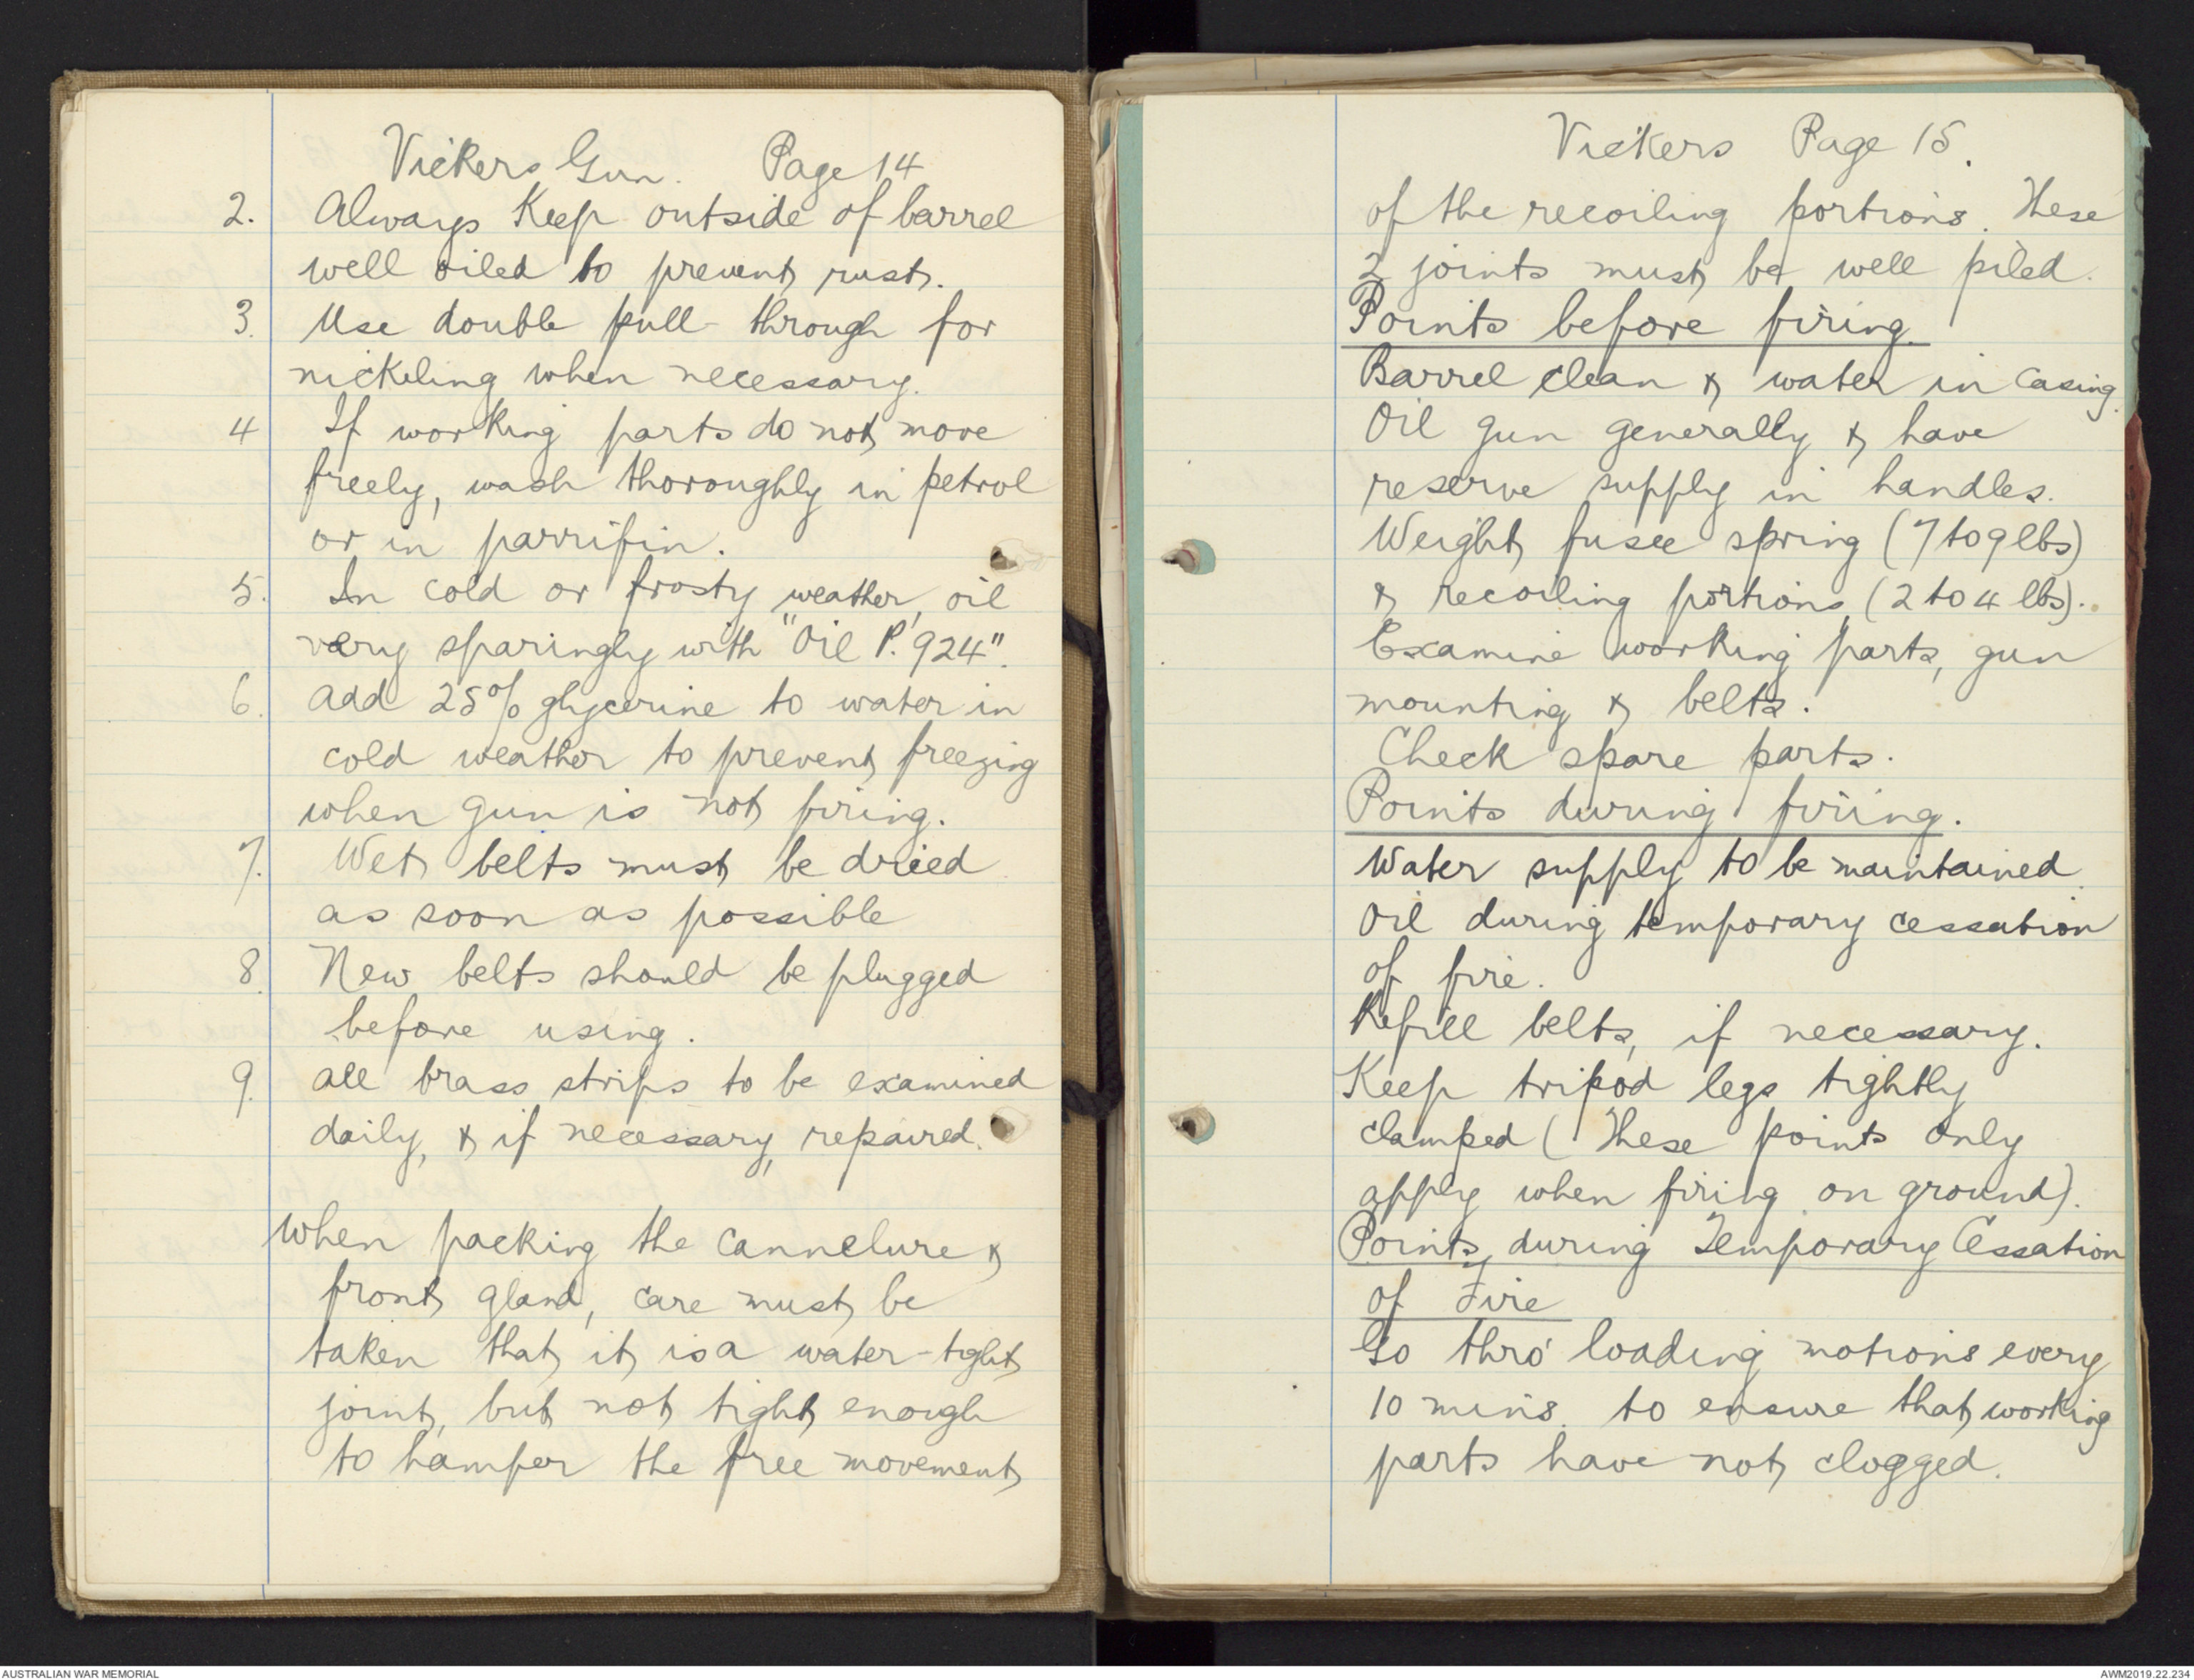 Vickers Gun. Page 14
2. Always Keep outside of barrel
well oiled to prevent rust.
3. Use double pull-through for
nickeling when necessary.
4 If working parts do not move
freely, wash thoroughly in petrol
or in parrifin.
5. In cold or frosty weather, oil
very sparingly with "Oil P. 924".
6. Add 25% glycerine to water in
cold weather to prevent freezing
when gun is not firing.
7. Wet belts must be dried
as soon as possible
8. New belts should be plugged
before using.
9. All brass strips to be examined
daily, & if necessary, repaired.
When packing the cannelure &
front gland, care must be
taken that it is a water-tight
joint, but not tight enough
to hamper the free movement
Vickers Page 15.
of the recoiling portions. These
2 joints must be well oiled.
Points before firing.
Barrel clean & water in casing.
Oil gun generally & have
reserve supply in handles.
Weight fusee spring (7 to 9 lbs)
& recoiling portions (2 to 4 lbs).
Examine working parts, gun
mounting & belts.
Check spare parts.
Points during firing.
Water supply to be maintained.
Oil during temporary cessation
of fire.
Refill belts, if necessary.
Keep tripod legs tightly
clamped (These points only
apply when firing on ground).
Points during Temporary Cessation
of Fire
Go thro' loading motions every
10 mins. to ensure that working
parts have not clogged.
AUSTRALIAN WAR MEMORIAL
AWM2019.22.234